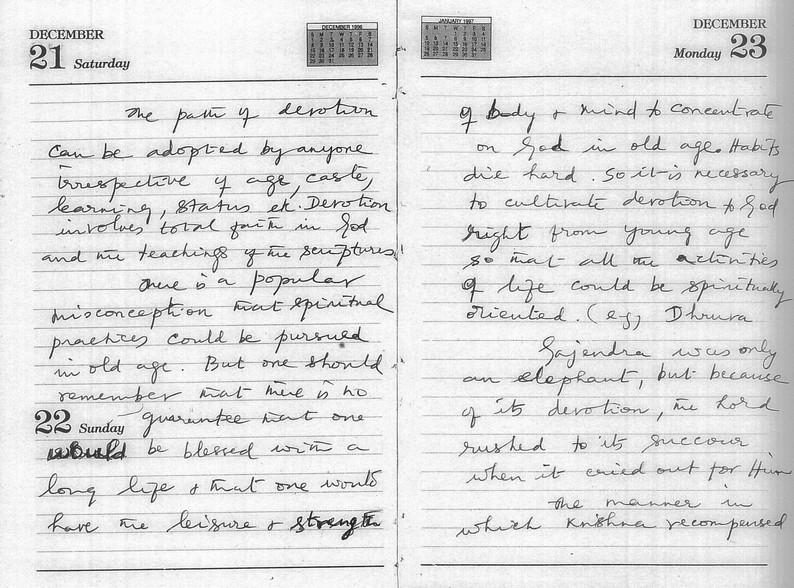 DECEMBER
21 Saturday
DECEMBER 1996
The path of devotion
can be adopted by anyone
irrespective of age, caste,
learning, status etc. Devotion
involves total faith in God
and the teachings of the scriptures
There is a popular
misconception that spiritual
practices could be pursued
in old age. But one should
remember that there is no
22 Sunday
guarantee that one
would be blessed with a
long life & that one would
have the leisure & strength
JANUARY 1997
DECEMBER
Monday 23
of body & mind to concentrate
on God in old age. Habits
die hard. So it is necessary
to cultivate devotion to God
right from young age
so that all the activities
of life could be spiritually
oriented. (eg, Dhruva
Gajendra was only
an elephant, but because
of its devotion, the Lord
rushed to its succour
when it cried out for Him
The manner in
which Krishna recompensed